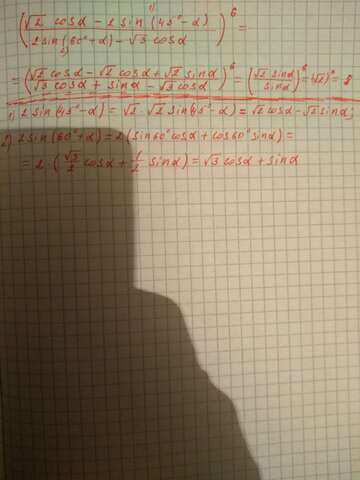 1)
(√2 cosα - 2 sin (45° - α) / 2 sin (60° + α) - √3 cosα)^6 =
2)
= (√2 cosα - √2 cosα + √2 sinα / √3 cosα + sinα - √3 cosα)^6 = (√2 sinα / sinα)^6 = (√2)^6 = 8
1) 2 sin(45° - α) = √2 · √2 sin(45° - α) = √2 cosα - √2 sinα;
2) 2 sin (60° + α) = 2 (sin60° cosα + cos60° sinα) =
= 2 · (√3/2 cosα + 1/2 sinα) = √3 cosα + sinα